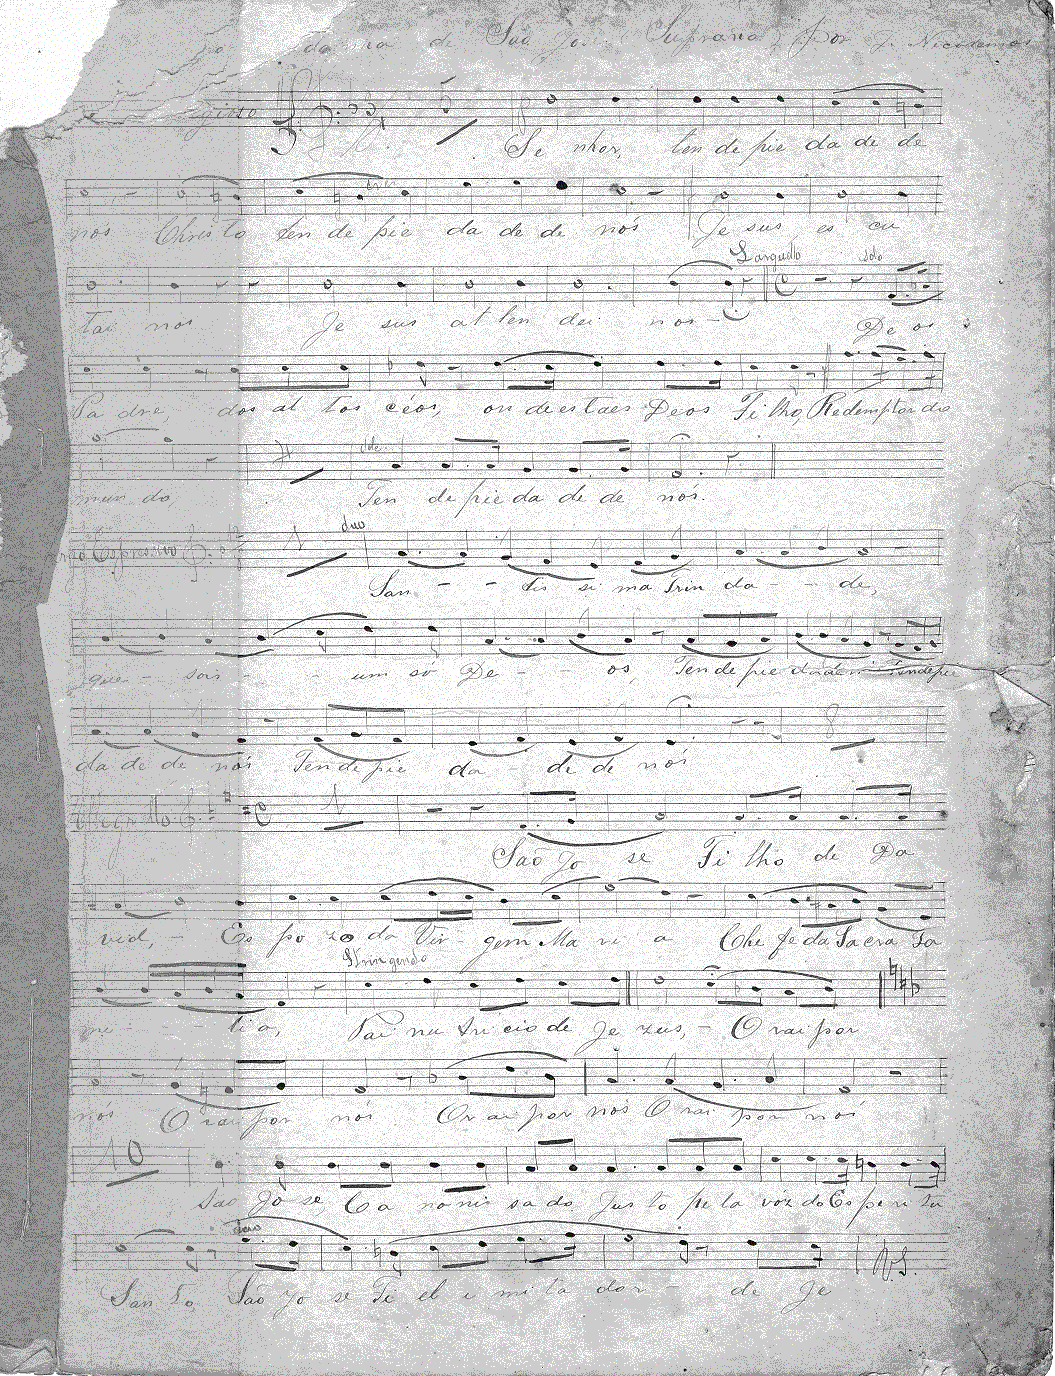 de São José Suprano por J. Nicodemos
Se nhor, ten de pie da de de
nos Christo ten de pie da de de nós Je sus es cu
Larguetto solo
tai nos Je sus at ten dei nos - De os
Pa dre, dos al tos céos, on de es taes Deos Fi lho, Redemptor do
mun do Ten de pie da de de nós.
Espressivo duo
San - - tis si ma Trin da - - de,
que - sois - - um só De - - os, Ten de pie dade de nós Ten de pie
da de de nós Ten de pie da - de de nós
São Jo se Fi lho de Da
vid, - Es po zo da Vir - gem Ma ri a Che fe da Sa cra Fa
Stringendo
mi - - - li a, Pai nu tri cio de Je zus, - O rai por
nós O rai por nós O rai por nós O rai por nós
10
São Jo se, Ca no nis sa do Jus to pe la voz do Es pi ri to
duo
San to, São Jo se Fi el i mi ta dor - de Je
V.S.